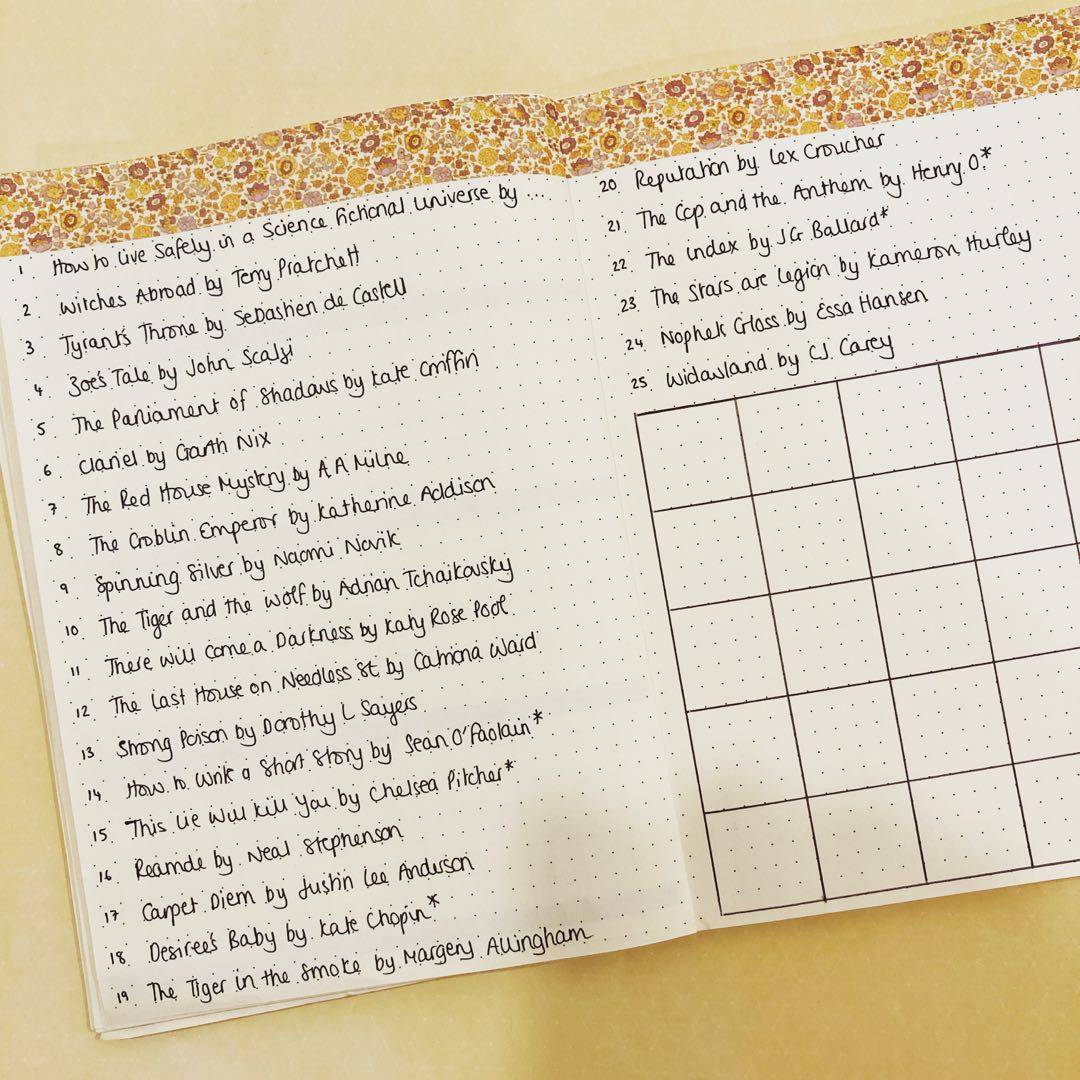 1. How to Live Safely in a Science Fictional Universe by ...
2. Witches Abroad by Terry Pratchett
3. Tyrant's Throne by Sebastien de Castell
4. Zoe's Tale by John Scalzi
5. The Parliament of Shadows by Kate Griffin
6. Clariel by Garth Nix
7. The Red House Mystery by A A Milne
8. The Goblin Emperor by Katherine Addison
9. Spinning Silver by Naomi Novik
10. The Tiger and the Wolf by Adrian Tchaikovsky
11. There Will Come a Darkness by Katy Rose Pool
12. The Last House on Needless St. by Catriona Ward
13. Strong Poison by Dorothy L Sayers
14. How to Write a Short Story by Sean O'Faolain*
15. This Lie Will Kill You by Chelsea Pitcher*
16. Reamde by Neal Stephenson
17. Carpet Diem by Justin Lee Anderson
18. Desiree's Baby by Kate Chopin*
19. The Tiger in the Smoke by Margery Allingham
20. Reputation by Lex Croucher
21. The Cop and the Anthem by Henry. O*
22. The Index by JG Ballard*
23. The Stars are Legion by Kameron Hurley
24. Nophek Gloss by Essa Hansen
25. Widowland by CJ Carey